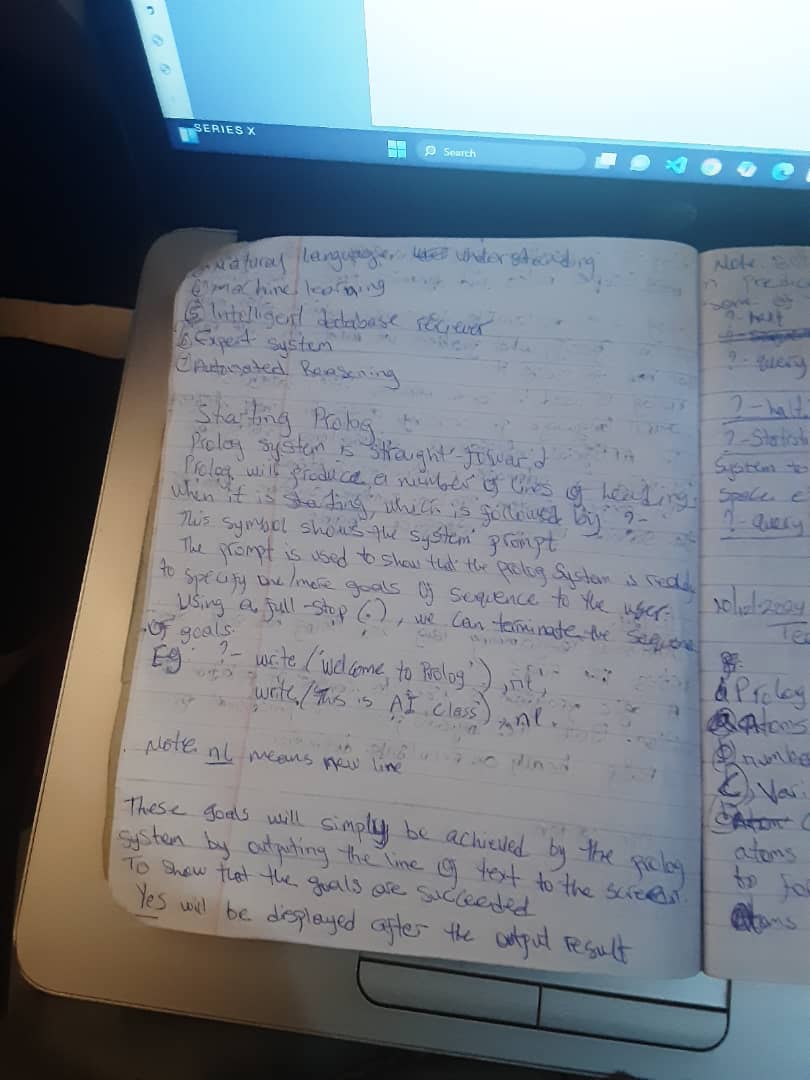 SERIES X
Search
Natural languages understanding
④ machine learning
⑤ Intelligent database
⑥ Expert system
⑦ Automated Reasoning
Starting Prolog
Prolog system is straight-forward
Prolog will produce a number of lines of heading
when it is starting, which is followed by ?-
This symbol shows the system prompt
The prompt is used to show that the prolog system is ready
to specify one/more goals of sequence to the user.
Using a full-stop (.), we can terminate the sequence
of goals.
Eg ?- write ('Welcome to Prolog'), nl,
write (This is AI class), nl.
Note nl means new line
These goals will simply be achieved by the prolog
system by outputing the line of text to the screen.
To show that the goals are succeeded
Yes will be displayed after the output result
Note
?- halt
?- query
?- halt
?- Statist
System to
Space
?- query
Prolog
Atoms
numbe
Vari
atoms
to fo
Atoms